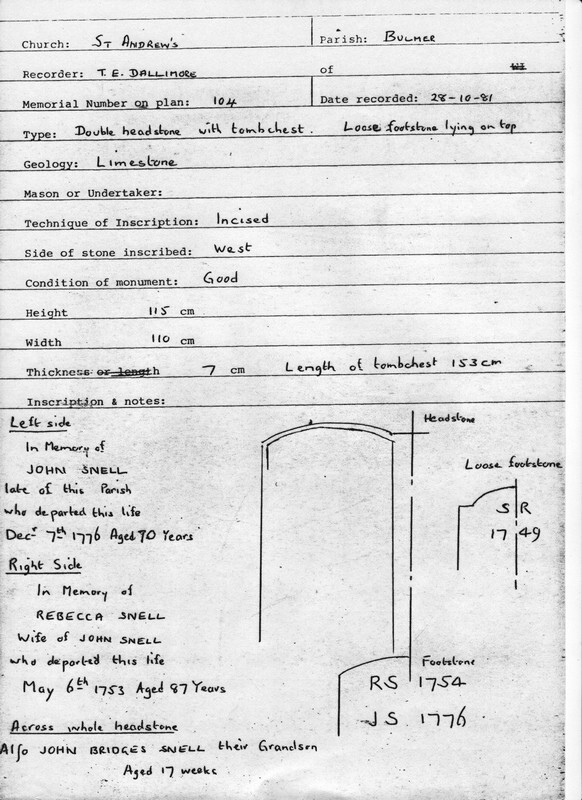 Church: ST ANDREW'S
Parish: BULMER
Recorder: T. E. DALLIMORE of WI
Memorial Number on plan: 104
Date recorded: 28-10-81
Type: Double headstone with tombchest. Loose footstone lying on top
Geology: Limestone
Mason or Undertaker:
Technique of Inscription: Incised
Side of stone inscribed: West
Condition of monument: Good
Height 115 cm
Width 110 cm
Thickness or length 7 cm Length of tombchest 153 cm
Inscription & notes:
Left side
In Memory of
JOHN SNELL
late of this Parish
who departed this life
Decr 7th 1776 Aged 70 Years
Right Side
In Memory of
REBECCA SNELL
Wife of JOHN SNELL
who departed this life
May 6th 1753 Aged 87 Years
Across whole headstone
Also JOHN BRIDGES SNELL their Grandson
Aged 17 weeks
Headstone
Loose footstone
S R
17 49
Footstone
RS 1754
JS 1776